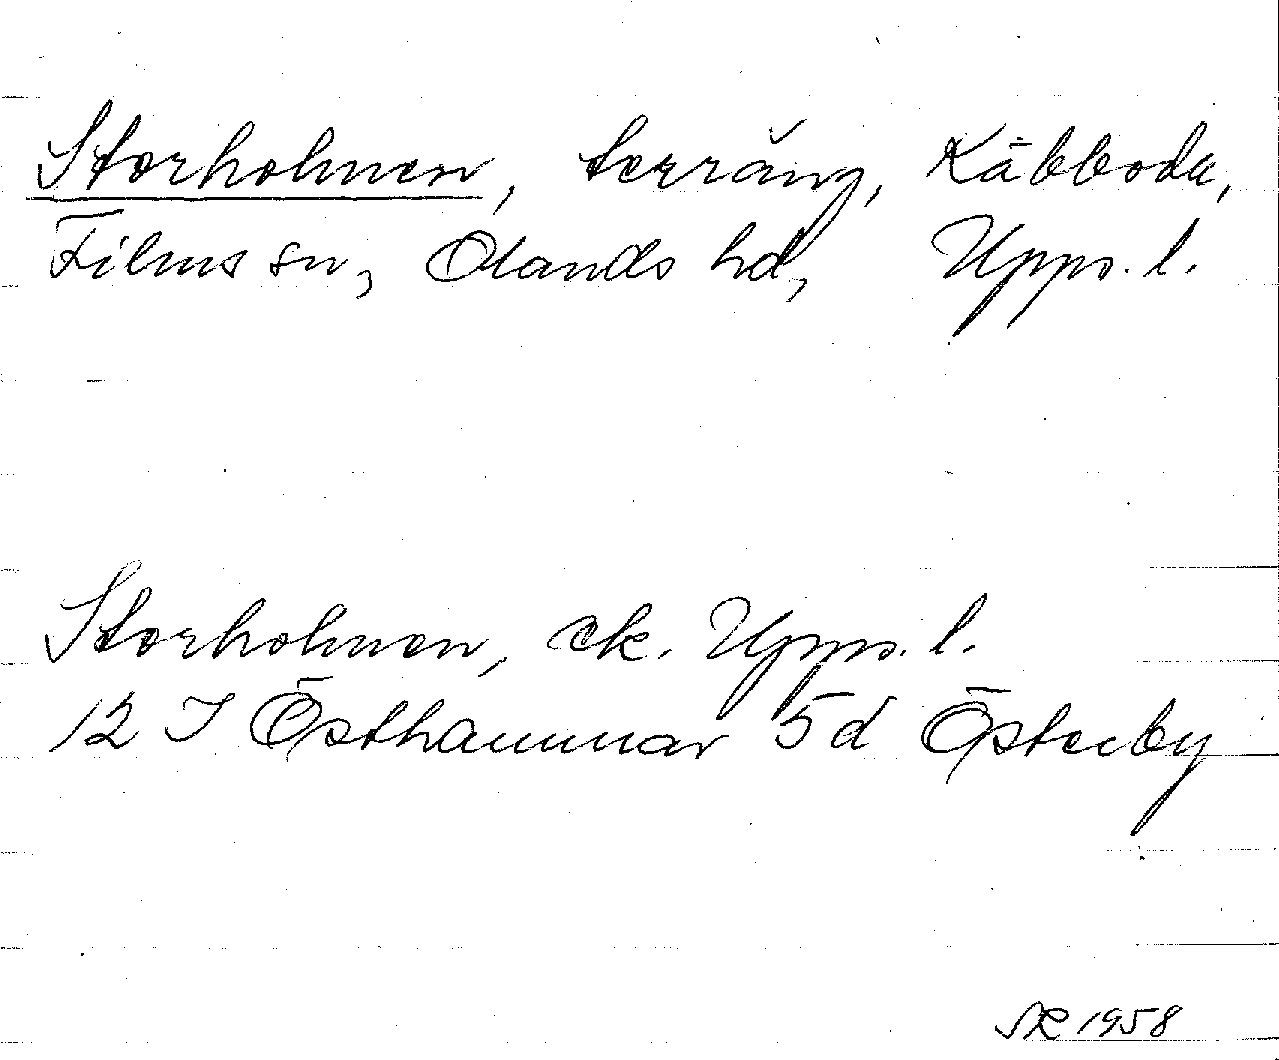 Storholmen, terräng, Kåbboda,
Films sn, Olands hd, Upps. l.
Storholmen, ek. Upps. l.
12 I Östhammar 5d Österby
1958